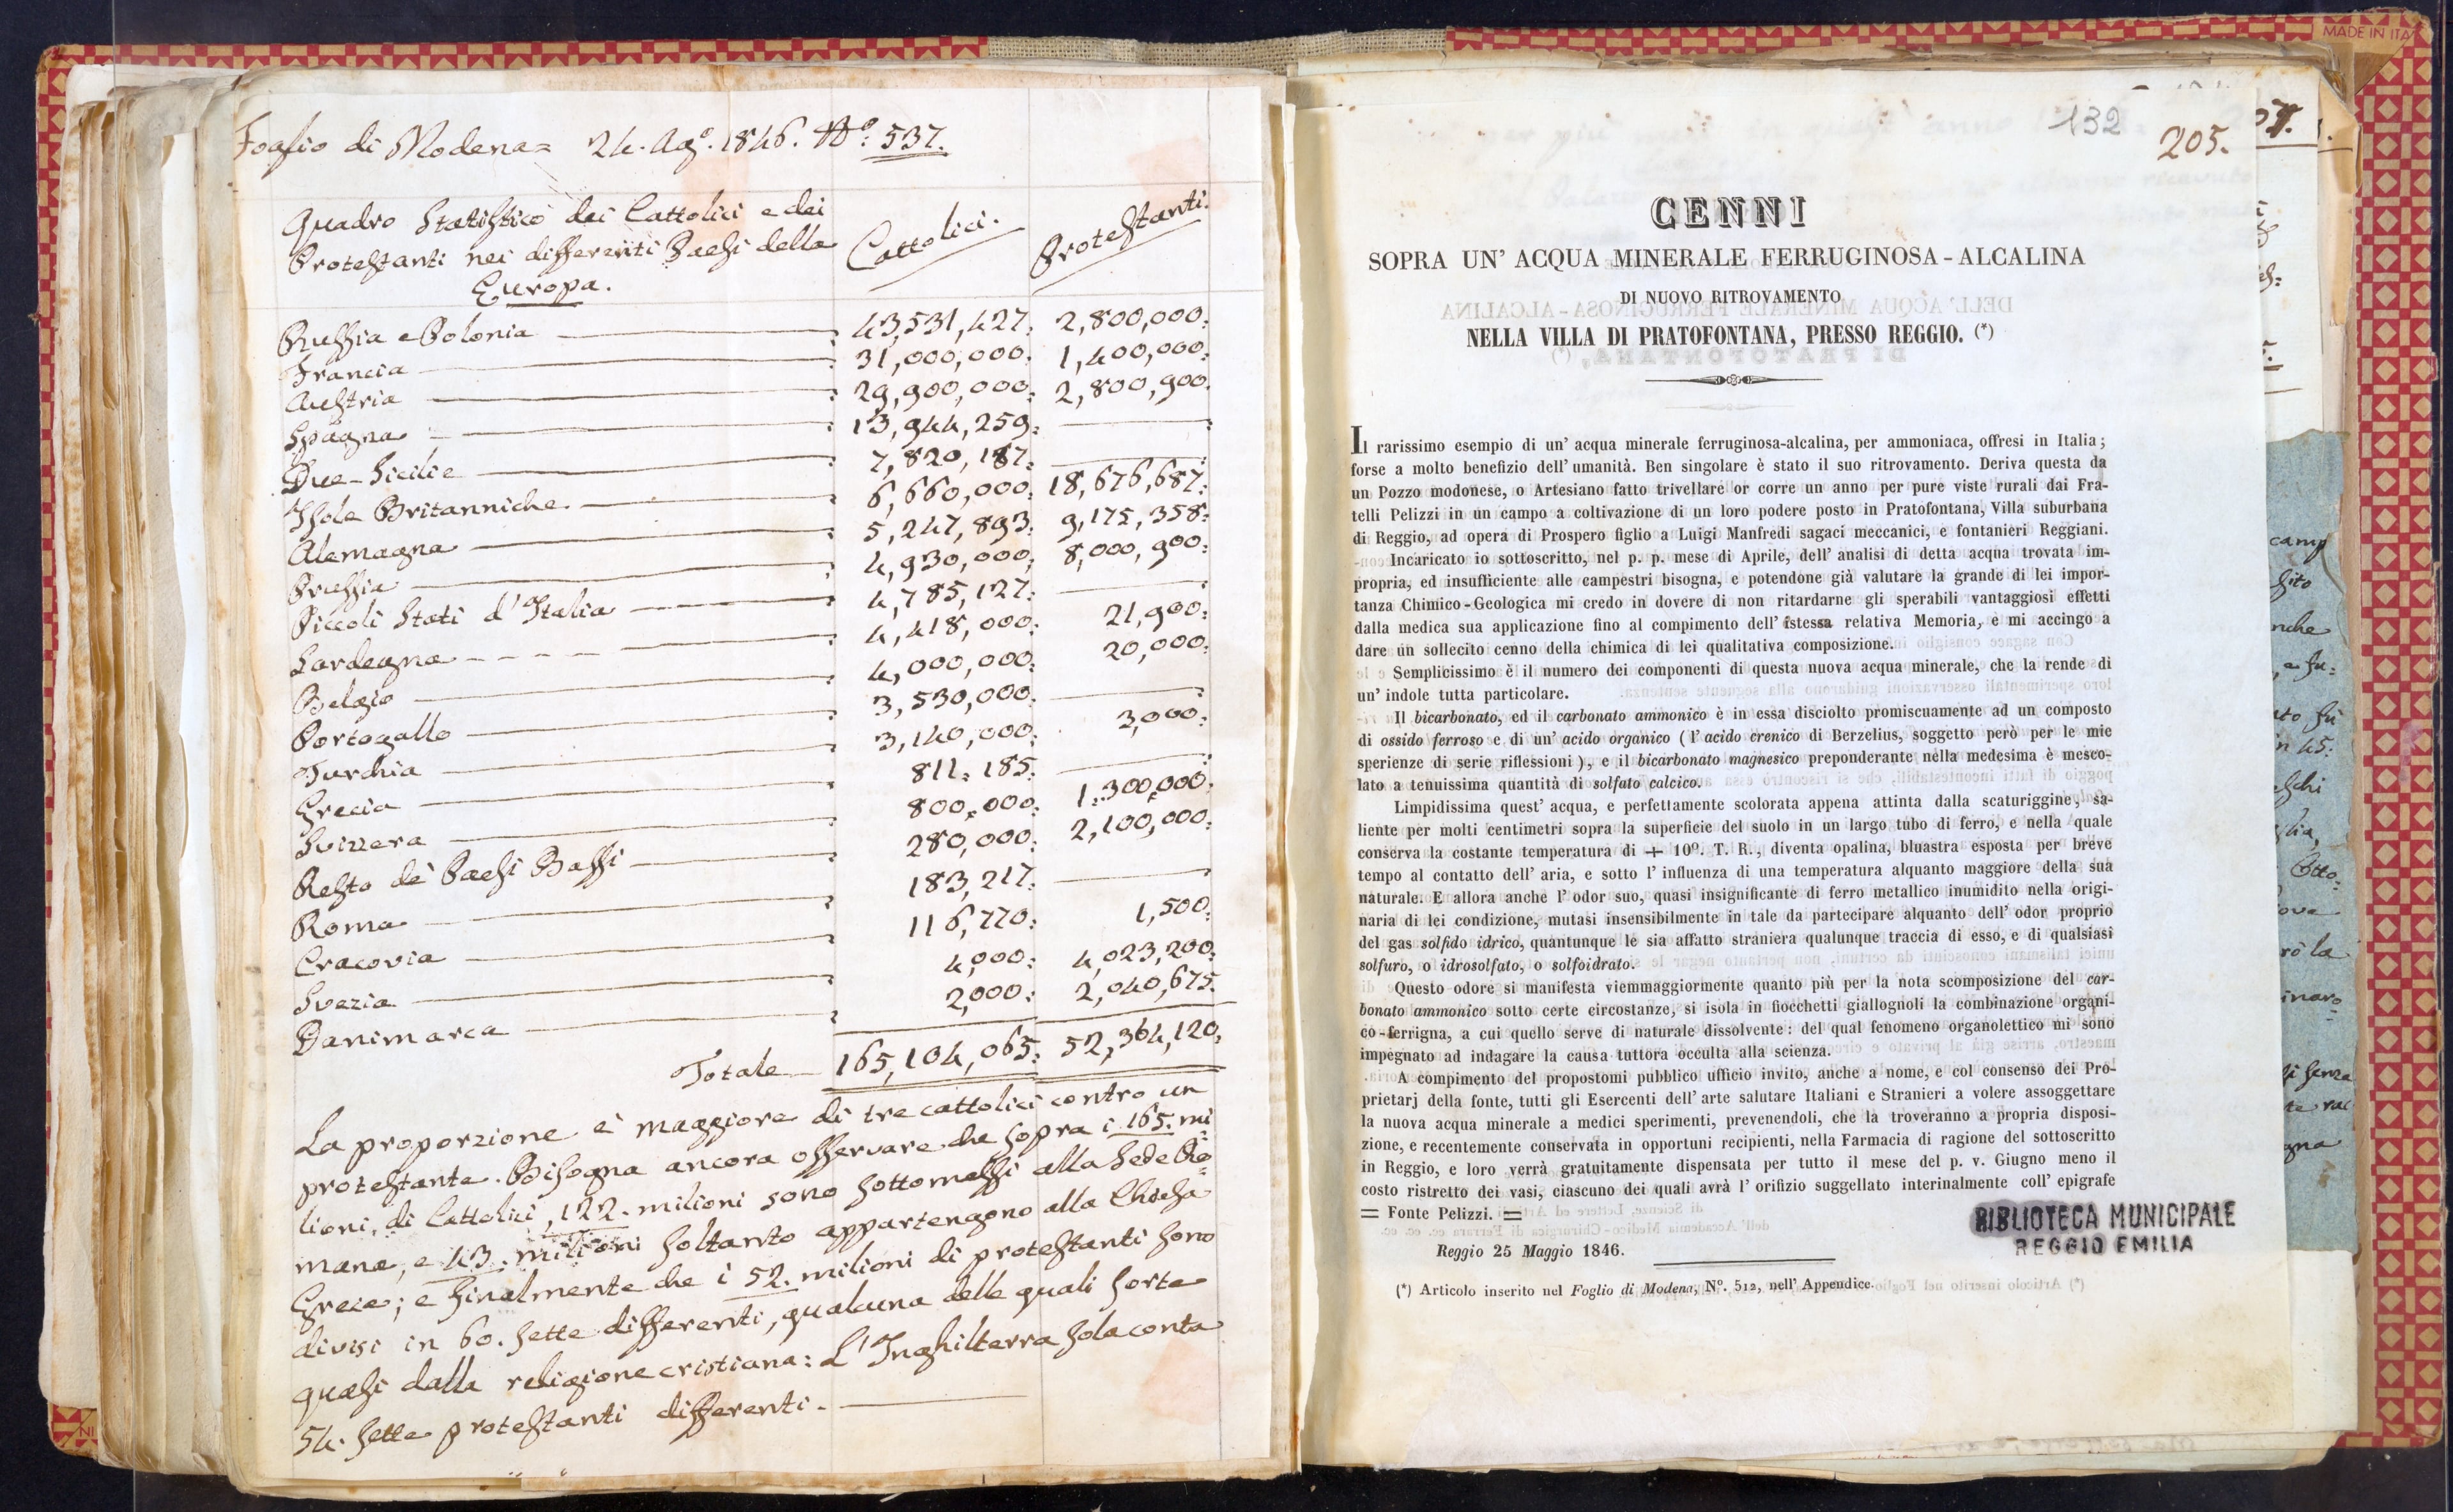 Foglio di Modena = 24. Ag.º 1846. Nº: 537.
Quadro Statistico dei Cattolici e dei
Protestanti nei differenti Paesi della
Europa.
Cattolici.
Protestanti.
Russia e Polonia 43,531,427: 2,800,000:
Francia 31,000,000: 1,400,000:
Austria 29,900,000: 2,800,900.
Spagna 13,944,259:
Due-Sicilie 7,820,187:
Isole Britanniche 6,660,000: 18,676,687:
Alemagna 5,247,893: 9,175,358:
Prussia 4,930,000: 8,000,900:
Piccoli Stati d'Italia 4,785,127:
Sardegna 4,418,000: 21,900:
Belgio 4,000,000: 20,000:
Portogallo 3,530,000:
Turchia 3,140,000: 3,000:
Grecia 811,185:
Svizzera 800,000: 1,300,000:
Resto de' Paesi Bassi 280,000: 2,100,000:
Roma 183,217:
Cracovia 116,770: 1,500:
Svezia 4,000: 4,023,200:
Danimarca 2,000: 2,040,675.
Totale 165,104,065: 52,364,120.
La proporzione è maggiore di tre cattolici contro un
protestante. Bisogna ancora osservare che sopra i 165. mi-
lioni, di Cattolici, 122. milioni sono sottomessi alla Sede Ro=
mana, e 43. milioni soltanto appartengono alla Chiesa
Greca; e finalmente che i 52. milioni di protestanti sono
divisi in 60. sette differenti, qualcuna delle quali sorte
quasi dalla religione cristiana: L'Inghilterra sola conta
54. sette protestanti differenti.
132
205.
CENNI
SOPRA UN' ACQUA MINERALE FERRUGINOSA-ALCALINA
DI NUOVO RITROVAMENTO
NELLA VILLA DI PRATOFONTANA, PRESSO REGGIO. (*)
Il rarissimo esempio di un' acqua minerale ferruginosa-alcalina, per ammoniaca, offresi in Italia;
forse a molto benefizio dell' umanità. Ben singolare è stato il suo ritrovamento. Deriva questa da
un Pozzo modonese, o Artesiano fatto trivellare or corre un anno per pure viste rurali dai Fra-
telli Pelizzi in un campo a coltivazione di un loro podere posto in Pratofontana, Villa suburbana
di Reggio, ad opera di Prospero figlio a Luigi Manfredi sagaci meccanici, e fontanieri Reggiani.
Incaricato io sottoscritto, nel p. p. mese di Aprile, dell' analisi di detta acqua trovata im-
propria, ed insufficiente alle campestri bisogna, e potendone già valutare la grande di lei impor-
tanza Chimico-Geologica mi credo in dovere di non ritardarne gli sperabili vantaggiosi effetti
dalla medica sua applicazione fino al compimento dell' istessa relativa Memoria, e mi accingo a
dare un sollecito cenno della chimica di lei qualitativa composizione.
Semplicissimo è il numero dei componenti di questa nuova acqua minerale, che la rende di
un' indole tutta particolare.
Il bicarbonato, ed il carbonato ammonico è in essa disciolto promiscuamente ad un composto
di ossido ferroso e di un' acido organico (l' acido crenico di Berzelius, soggetto però per le mie
sperienze di serie riflessioni), e il bicarbonato magnesico preponderante nella medesima è mesco-
lato a tenuissima quantità di solfato calcico.
Limpidissima quest' acqua, e perfettamente scolorata appena attinta dalla scaturiggine, sa-
liente per molti centimetri sopra la superficie del suolo in un largo tubo di ferro, e nella quale
conserva la costante temperatura di + 10º. T. R., diventa opalina, bluastra esposta per breve
tempo al contatto dell' aria, e sotto l' influenza di una temperatura alquanto maggiore della sua
naturale. E allora anche l' odor suo, quasi insignificante di ferro metallico inumidito nella origi-
naria di lei condizione, mutasi insensibilmente in tale da partecipare alquanto dell' odor proprio
del gas solfido idrico, quantunque le sia affatto straniera qualunque traccia di esso, e di qualsiasi
solfuro, o idrosolfato, o solfoidrato.
Questo odore si manifesta viemmaggiormente quanto più per la nota scomposizione del car-
bonato ammonico sotto certe circostanze, si isola in fiocchetti giallognoli la combinazione organi-
co-ferrigna, a cui quello serve di naturale dissolvente: del qual fenomeno organolettico mi sono
impegnato ad indagare la causa tuttora occulta alla scienza.
A compimento del propostomi pubblico ufficio invito, anche a nome, e col consenso dei Pro-
prietarj della fonte, tutti gli Esercenti dell' arte salutare Italiani e Stranieri a volere assoggettare
la nuova acqua minerale a medici sperimenti, prevenendoli, che la troveranno a propria disposi-
zione, e recentemente conservata in opportuni recipienti, nella Farmacia di ragione del sottoscritto
in Reggio, e loro verrà gratuitamente dispensata per tutto il mese del p. v. Giugno meno il
costo ristretto dei vasi, ciascuno dei quali avrà l' orifizio suggellato interinalmente coll' epigrafe
= Fonte Pelizzi. =
BIBLIOTECA MUNICIPALE
REGGIO EMILIA
Reggio 25 Maggio 1846.
(*) Articolo inserito nel Foglio di Modena, Nº. 512, nell' Appendice.
MADE IN ITA